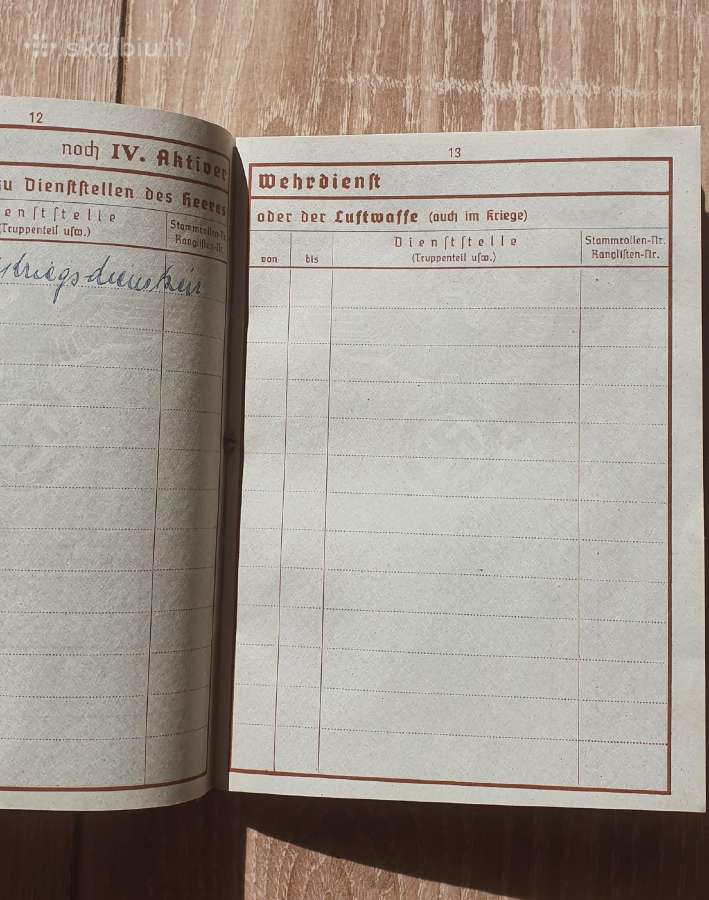 skelbiu.lt
12
noch IV. Aktiver
zu Dienststellen des Heeres
enststelle
(Truppenteil usw.)
Stammrollen-Nr.
Ranglisten-Nr.
13
Wehrdienst
oder der Luftwaffe (auch im Kriege)
von
bis
Dienststelle
(Truppenteil usw.)
Stammrollen-Nr.
Ranglisten-Nr.